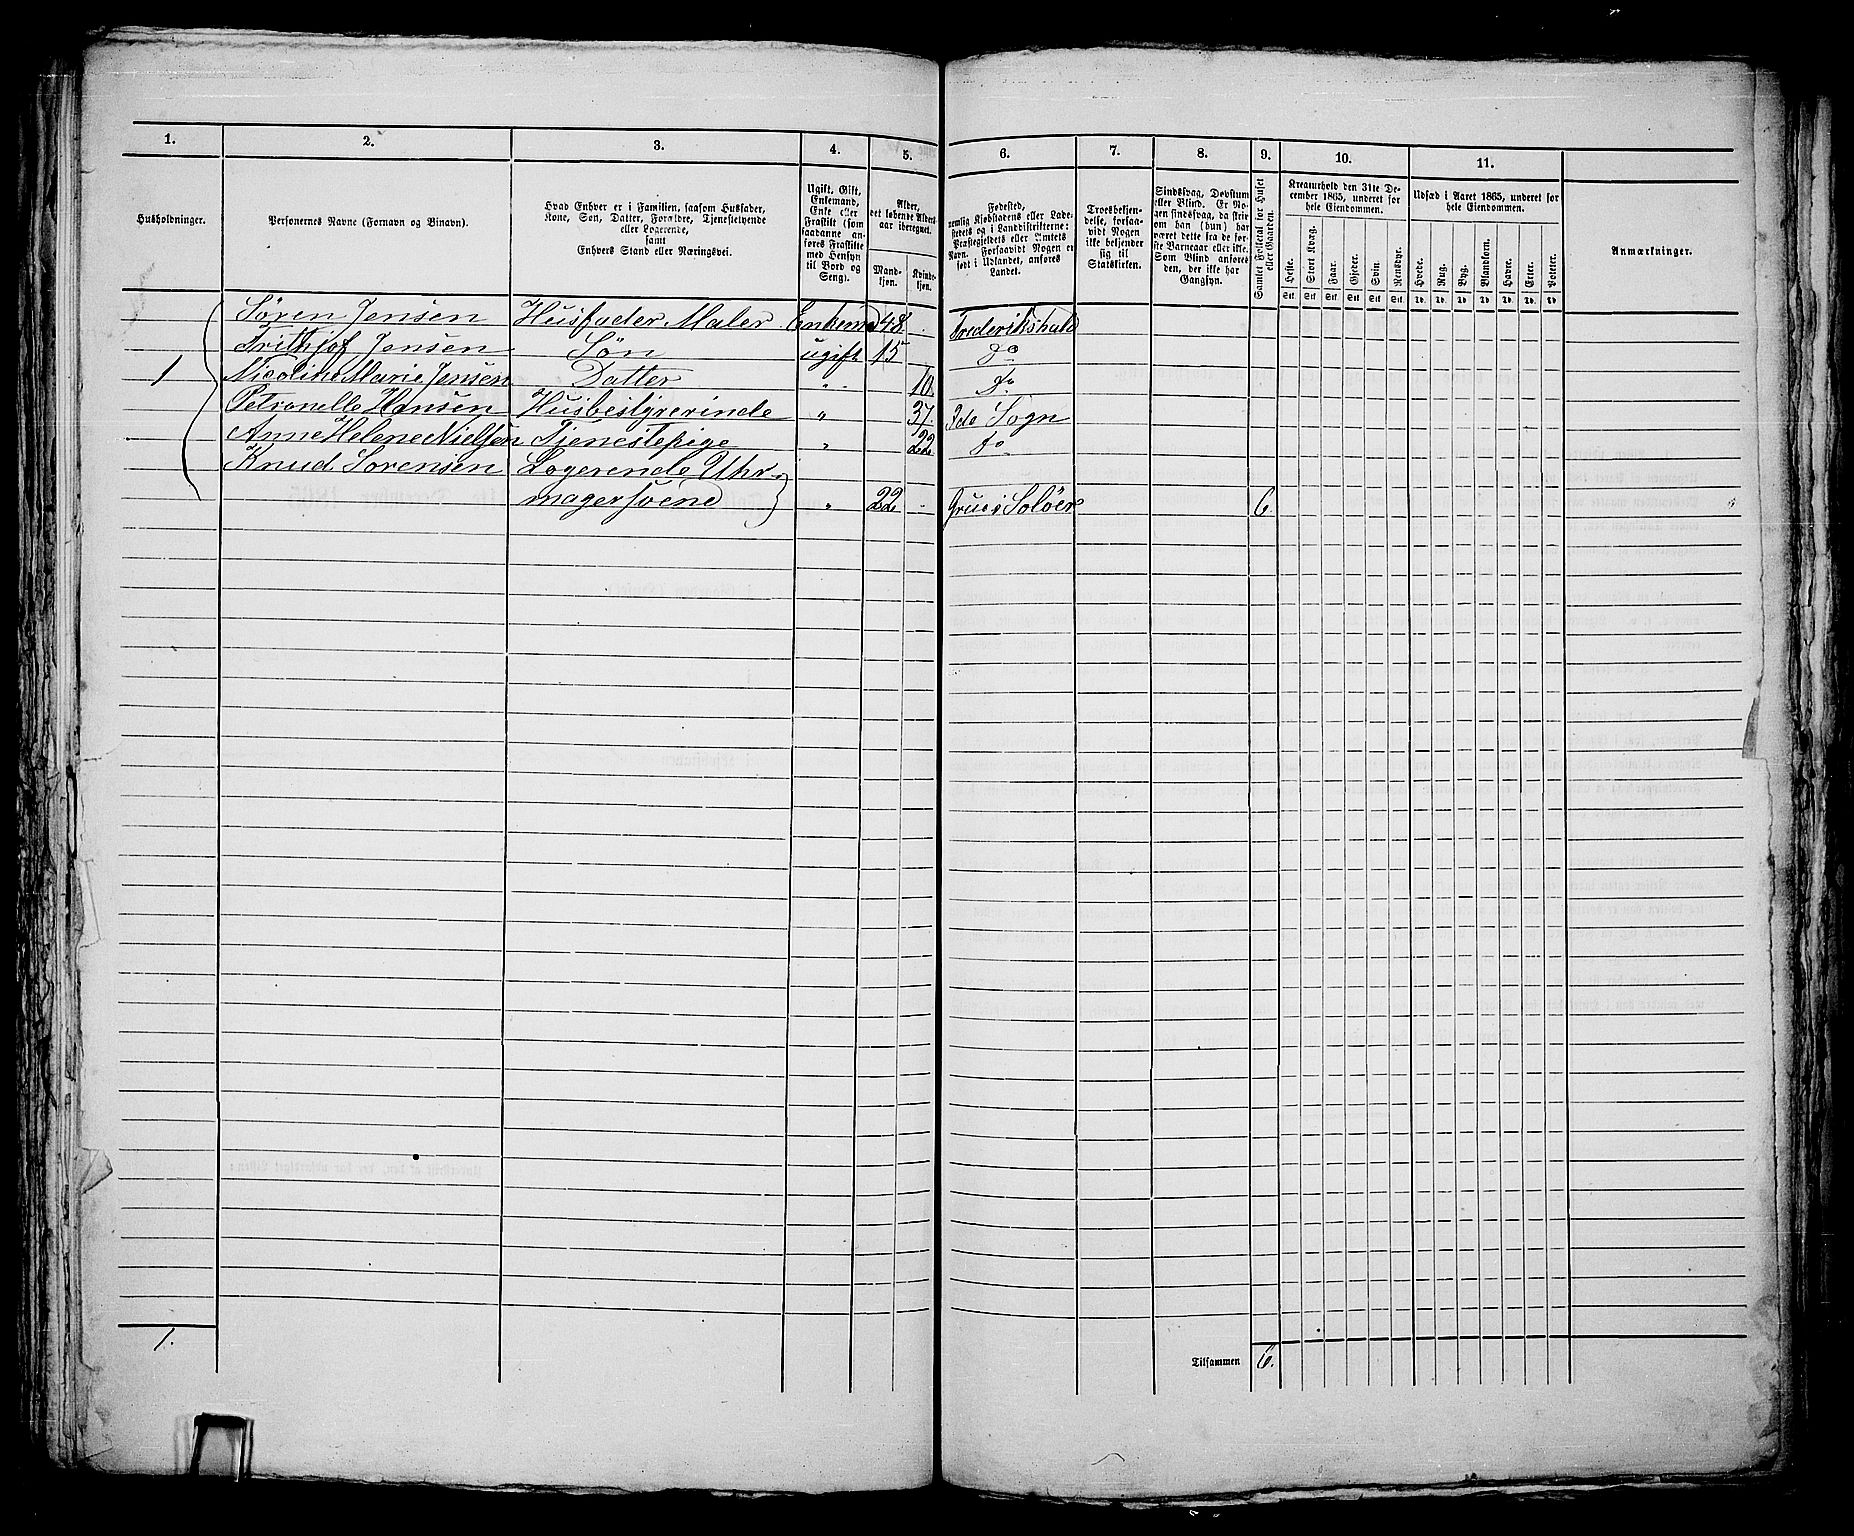 1. 2. 3. 4. 5. 6. 7. 8. 9. 10. 11.
Husholdninger.
Personernes Navne (Fornavn og Binavn).
Hvad Enhver er i Familien, saasom Husfader,
Kone, Søn, Datter, Forældre, Tjenestetyende
eller Logerende,
samt
Enhvers Stand eller Næringsvei.
Ugift, Gift,
Enkemand,
Enke eller
Fraskilt (som
saadanne an-
føres Fraskilte
med Hensyn
til Bord og
Seng).
Alder,
det løbende Alders-
aar iberegnet.
Mand-
kjøn.
Kvinde-
kjøn.
Fødested,
nemlig Kjøbstadens eller Lade-
stedets og i Landdistrikterne:
Præstegjeldets eller Amtets
Navn. Forsaavidt Nogen er
født i Udlandet, anføres
Landet.
Troesbekjen-
delse, forsaa-
vidt Nogen
ikke bekjender
sig til
Statskirken.
Sindssvag, Døvstum
eller Blind. Er No-
gen sindssvag, da skrives
om han (hun) har
været dette fra de før-
ste Barneaar eller ei.
Som Blind anføres
den, der ikke har
Gangsyn.
Samlet Folketal for Huset
eller Gaarden.
Kreaturhold den 31te De-
cember 1865, underet for
hele Eiendommen.
Heste. Stort Kvæg. Faar. Gjeder. Svin. Rensdyr.
Stk Stk Stk Stk Stk Stk
Udsæd i Aaret 1865, underet for
hele Eiendommen.
Hvede. Rug. Byg. Blandkorn. Havre. Erter. Poteter.
Anmærkninger.
Søren Jensen Husfader Maler Enkemd 48. Frederikshald
Frithjof Jensen Søn ugift 15 do
1 Nicoline Marie Jensen Datter " 10. do
Petronelle Hansen Husbestyrerinde " 37. Ide Sogn
Anne Helene Nielsen Tjenestepige " 22 do
Knud Sørensen Logerende Uhr-
magersvend " 22 Grue i Soløer 6
1.
Tilsammen 6.